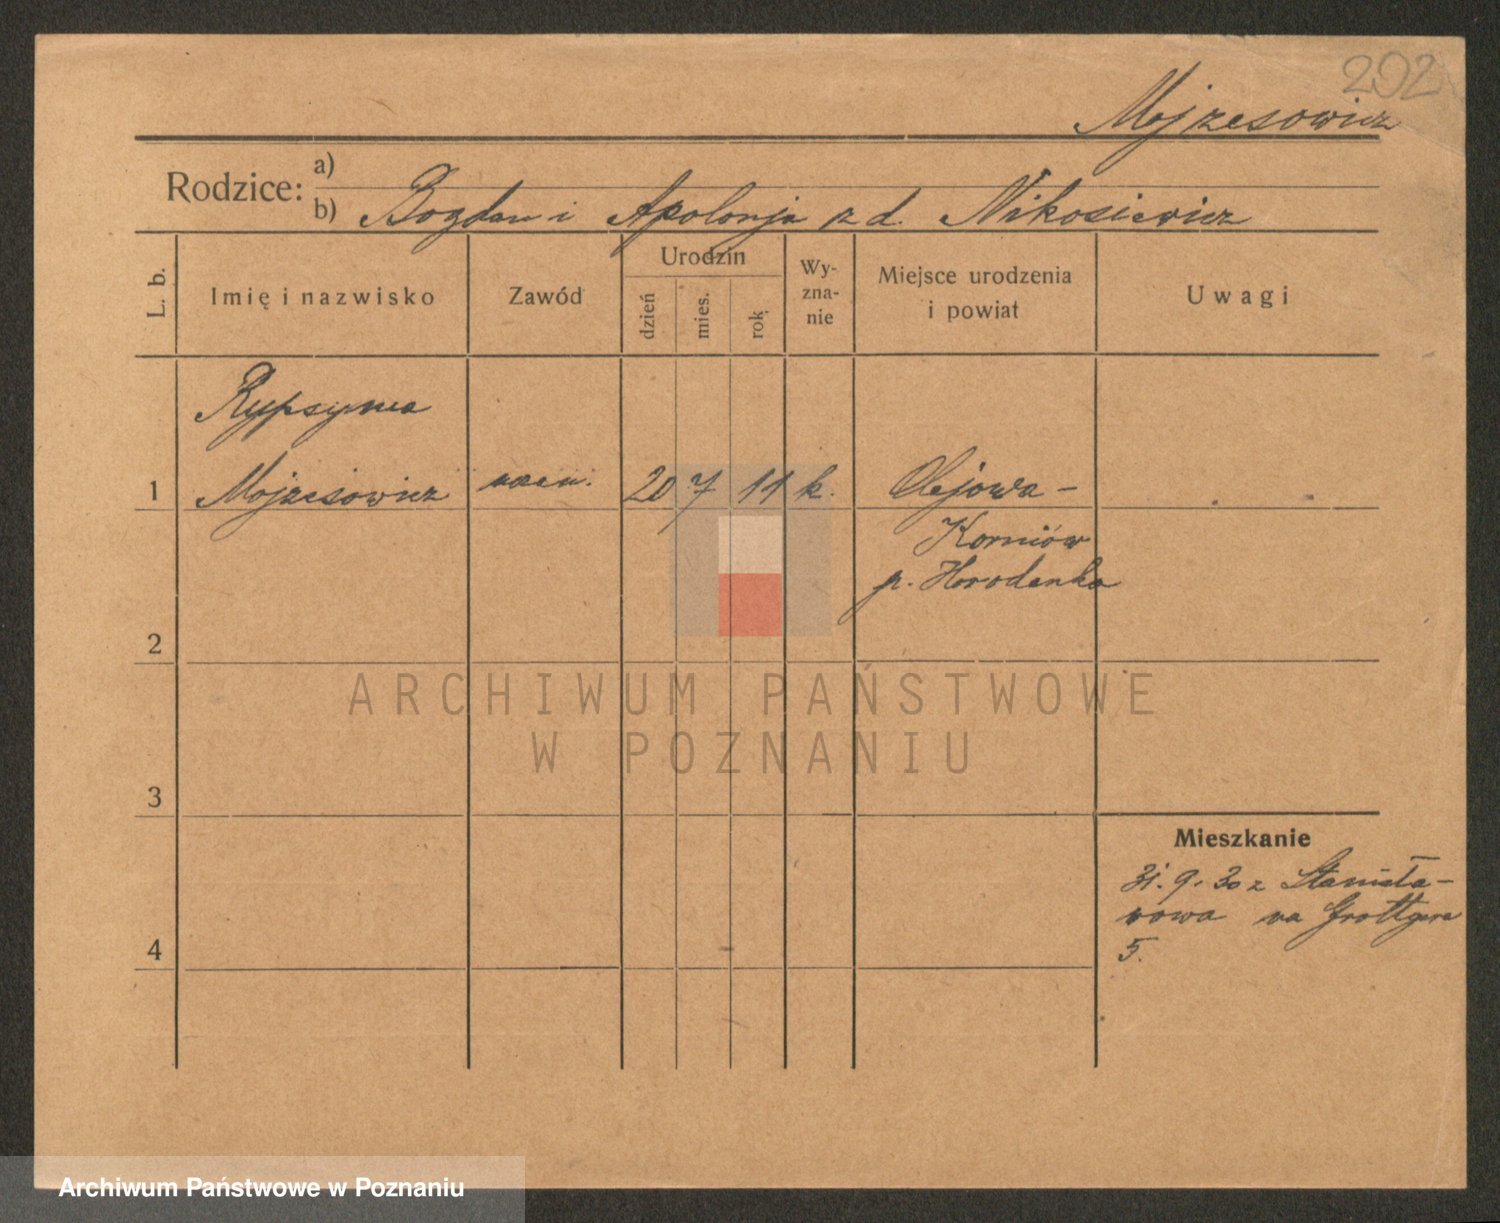 292
Mojzesowicz
Rodzice:
a)
b) Bogdan i Apolonja z d. Nikosiewicz
L. b.
Imię i nazwisko
Zawód
Urodzin
dzień
mies.
rok
Wy-
zna-
nie
Miejsce urodzenia
i powiat
Uwagi
Rypsyma
1 Mojzesowicz 20 7 11 k. Olejowa-
Korniów
p. Horodenka
2
3
4
ARCHIWUM PAŃSTWOWE
W POZNANIU
Mieszkanie
31. 9. 30 z Stanisła-
wowa na Grottgera
5.
Archiwum Państwowe w Poznaniu